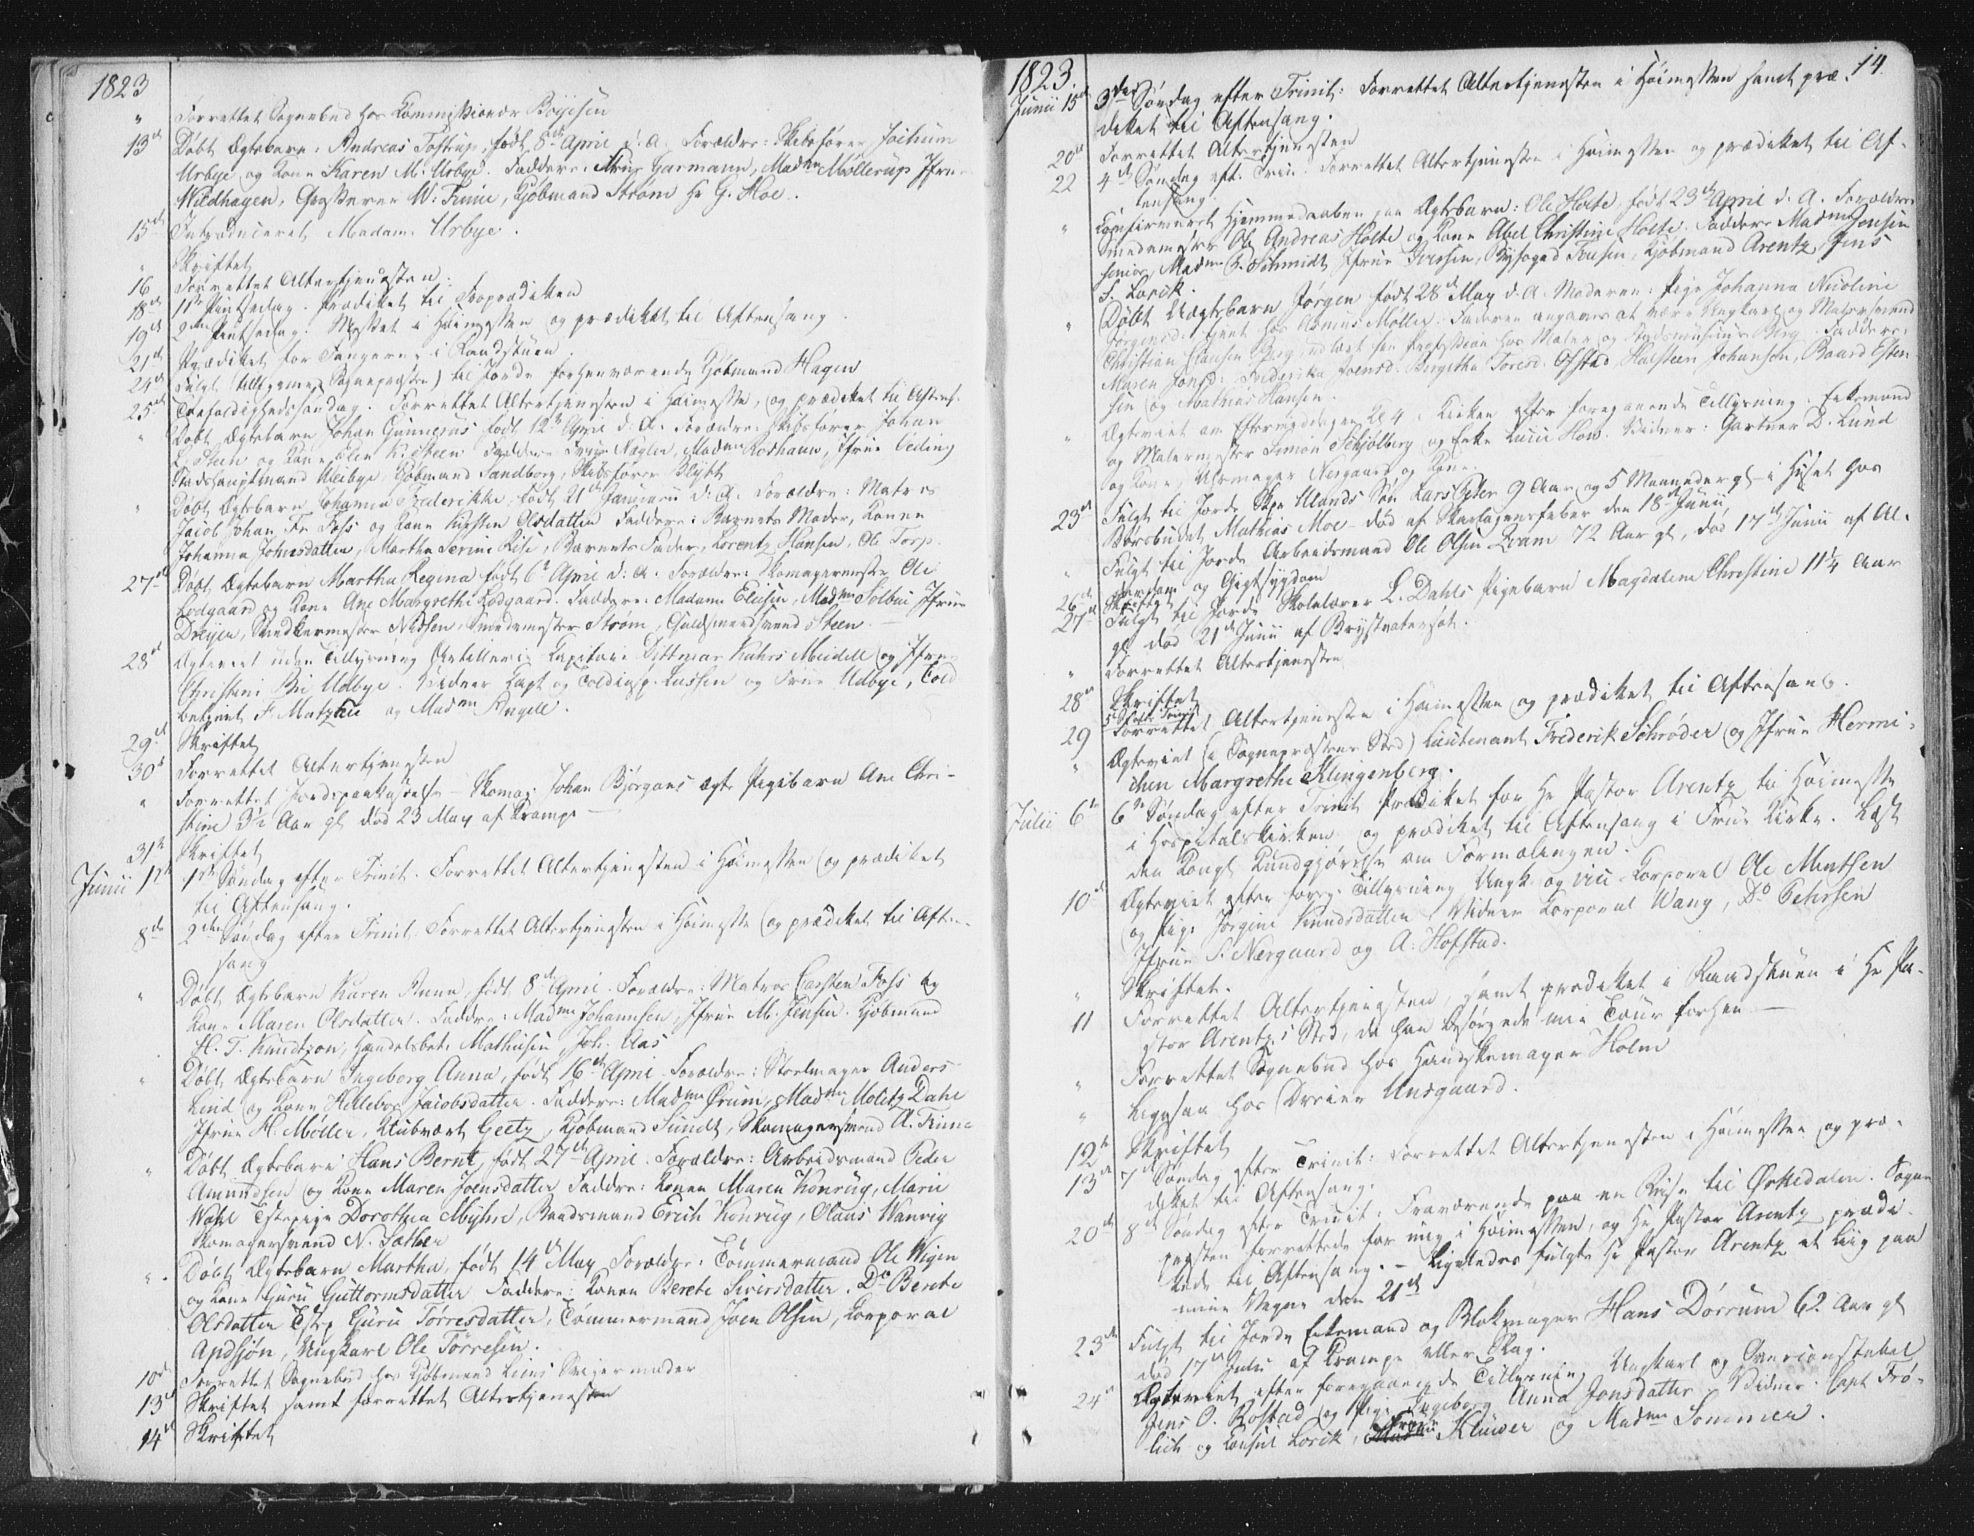 1823
" Forrettet Sognebud hos Kommissionair Boyesen
13de Døbt Ægtebarn: Andreas Tostrup, født 8de April d: A. Forældre: Skibsfører Jochum
Urbye og Kone Karen M. Urbye. Faddere: Garmann, Madme Møllerup, Jfrue
Wildhagen, W. Finne, Kjøbmand Strøm Hr G. Hoe.
15de Introduceret Madame Urbye.
" Skriftet
16 Forrettet Altertjenesten.
18de 1ste Pintsedag. Prædiket til Froprædiken
19de 2den Pintsedag. Messet i Høimessen og prædiket til Aftensang.
21de Prædiket for Fangerne i Raadstuen
24de Fulgt (tilligemed Sognepræsten) til Jorde forhenværende Kjøbmand Hagen
25de Trefoldighedssøndag. Forrettet Altertjenesten i Høimesse, og prædiket til Aftens.
" Døbt Ægtebarn Johan Gunnerus født 12te April d: A. Forældre: Skibsfører Johan
L. Steen og Kone Steen Faddere Frue Nagler, Madme Roshauw, Jfrue Ceding
Stadshauptmand Kjøbmand Sandborg, Skibsfører Blybt
" Døbt Ægtebarn Johanna Frederikke, født 21de Januarii d: A. Forældre: Matros
Jacob Johan Fr Foss og Kone Kirsten Olsdatter Faddere: Barnets Moder, Konen
Johanna Johnsdatter, Martha Serine Riise, Barnets Fader, Lorentz Hansen, Ole Torp.
27de Døbt Ægtebarn Martha Regina født 6te April d: A. Forældre: Skomagermester Ole
Lodgaard og Kone Ane Margrethe Lodgaard. Faddere: Madame Eliesen, Madme Solbue Jfrue
Dreyer, Snedkermester Nilsen, Smedemester Strøm, Guldsmedsvend Steen.
28de Ægteviet uden Tillysning Artilleri-Capitain Dittmar Kahrs Meidell og Jfrue
Christine Bie Udbye. Vidner Capt og Toldinsp. Lassen og Frue Udbye, Told
betjent F. Matzau og Madme Angell.
29de Skriftet
30te Forrettet Altertjenesten
" Forrettet Jordspaakastelse - Skomag. Johan Bjørgans ægte Pigebarn Ane Chri-
stine 3½ Aar gl død 23 May af Krampe
31te Skriftet
Junii 1ste 1ste Søndag efter Trinit. Forrettet Altertjenesten i Høimessen og prædiket
til Aftensang.
8de 2den Søndag efter Trinit. Forrettet Altertjenesten i Høimesse og prædiket til Aften-
sang
" Døbt Ægtebarn Karen Anna, født 8de April. Forældre: Matros Carsten Foss og
Kone Maren Olsdatter. Faddere: Madme Johannsen, Jfrue M. Jensen. Kjøbmand
H. T. Knudtzon, Handelsbetj. Mathisen Joh: Aas
" Døbt Ægtebarn Ingeborg Anna, født 16de April Forældre: Stoelmager Anders
Lind og Kone Hellebor Jacobsdatter. Faddere: Madme Ørum, Madme Moletz Dahl
Jfrue H. Møller, Klubvært Geetz, Kjøbmand Sundt, Skomagersvend A. Trine
" Døbt Ægtebarn Hans Bernt, født 27de April. Forældre: Arbeidsmand Peder
Amundsen og Kone Maren Joensdatter Faddere: Konen Maren Konrüg, Marie
Wahl Tstepige Dorothea Myhre, Baadsmand Erich Konrüg, Olaus Wanvig
Skomagersvend N. Sæther
" Døbt Ægtebarn Martha, født 14de May Forældre: Tømmermand Ole Wigen
og Kone Guru Guttormsdatter Faddere: Konen Berete Siversdatter. Do Berete
Olsdatter Tstp Guru Torresdatter, Tømmermand Joen Olsen, Korporal
Apdsjøn, Ungkarl Ole Tørresen.
10de Forrettet Sognebud hos Kjøbmand Liens Svigermoder
13de Skriftet samt forrettet Altertjenesten
14de Skriftet
1823. 14.
Junii 15de 3die Søndag efter Trinit: Forrettet Altertjenesten i Høimessen samt præ-
diket til Aftensang.
20de Forrettet Altertjenesten
22 4de Søndag eft. Trin: Forrettet Altertjenesten i Høimessen og prædiket til Af-
tensang.
" Confirmeret Hjemmedaaben paa Ægtebarn: Ole Holte, født 23de April d. A. Forældre
Smedemester Ole Andreas Holte og Kone Abel Christine Holte. Faddere Madme Jensen
senior, Madme C. Schmidt Jfrue Iversen, Byfoged Jensen, Kjøbmand Arentz, Jens
S. Lorck.
" Døbt Uægtebarn Jørgen født 28de May d. A. Moderen: Pige Johanna Nicoline
Jørgensd. tjent hos Møller. Faderen angaves at være Ungkarl og Malersvend
Christian Clausen Berg Profession hos Maler og Stadsmusicus Berg. Faddere:
Maren Jonsd. Frederikke Joensd. Birgitha Toresd. Ofstad Halsteen Johansen, Baard Esten
sen og Mathias Hansen.
" Ægteviet om Eftermiddagen Kl 4 i Kirken efter foregaaende Tillysning. Enkemand
og Malermester Simon Schjølberg og Enke Lucie How. Vidner: Gartner D. Lund
og Kone, Uhrmager Nergaard og Kone.
23de Fulgt til Jorde Skpr Ulands Søn Lars Peter 9 Aar og 5 Maaneder gl i Huset hos
Børsbudet Mathias Moe - død af Skarlagensfeber den 18de Junii
" Fulgt til Jorde Arbeidsmand Ole Olsen Kram 72 Aar gl, død 17de Junii af Al-
derdom og Gigtsygdom
26de Skriftet
27de Fulgt til Jorde Skolelærer L. Dahls Pigebarn Magdalena Christine 11¼ Aar
gl død 21de Junii af Brystvatersot.
" Forrettet Altertjenesten
28de Skriftet
29 5te S. eft. Trinit Forrettet Altertjenesten i Høimessen og prædiket til Aftensang.
" Ægteviet (i Sognepræstens Sted) Lieutenant Frederik Schrøder og Jfrue Hermi-
chen Margrethe Klingenberg.
Julii 6te 6te Søndag efter Trinit Prædiket for Hr Pastor Arentz til Høimesse
i Hospitalskirken og prædiket til Aftensang i Frue Kirke. Læst
den Kongl Kundgjørelse om Formalingen.
10de Ægteviet efter foreg. Tillysning Ungk. og vice-Korporal Ole Mentsen
og Pige Jørgine Knudsdatter. Vidner Korporal Wang, Do Pehrsen
Jfrue S. Nergaard og A. Hofstad.
" Skriftet.
11 Forrettet Altertjenesten, samt prædiket i Raadstuen i Hr Pa-
stor Arentz's Sted, da han besørgede min Tour forhen
" Forrettet Sognebud hos Handskemager Holm
" Ligesaa hos Dreier Unsgaard.
12te Skriftet
13de 7de Søndag efter Trinit: Forrettet Altertjenesten i Høimessen og præ-
diket til Aftensang.
20de 8de Søndag efter Trinit: Fraværende paa en Reise til Ørkedalen. Sogne
præsten forrettede for mig i Høimessen, og Hr Pastor Arentz prædi-
kede til Aftensang. - Ligeledes fulgte Hr Pastor Arentz et Liig paa
mine Vegne den 21de
23de Fulgt til Jorde Enkemand og Blokmager Hans Dørrum 62 Aar gl
død 17de Julii af Krampe eller Slag.
24de Ægteviet efter foregaaende Tillysning, Ungkarl og Overconstabel
Jens O. Rostad og Pige Ingeborg Anna Jonsdatter. Vidner: Capt Frø-
lich og Consul Lorck, Frue Klüwer og Madme Sommer.